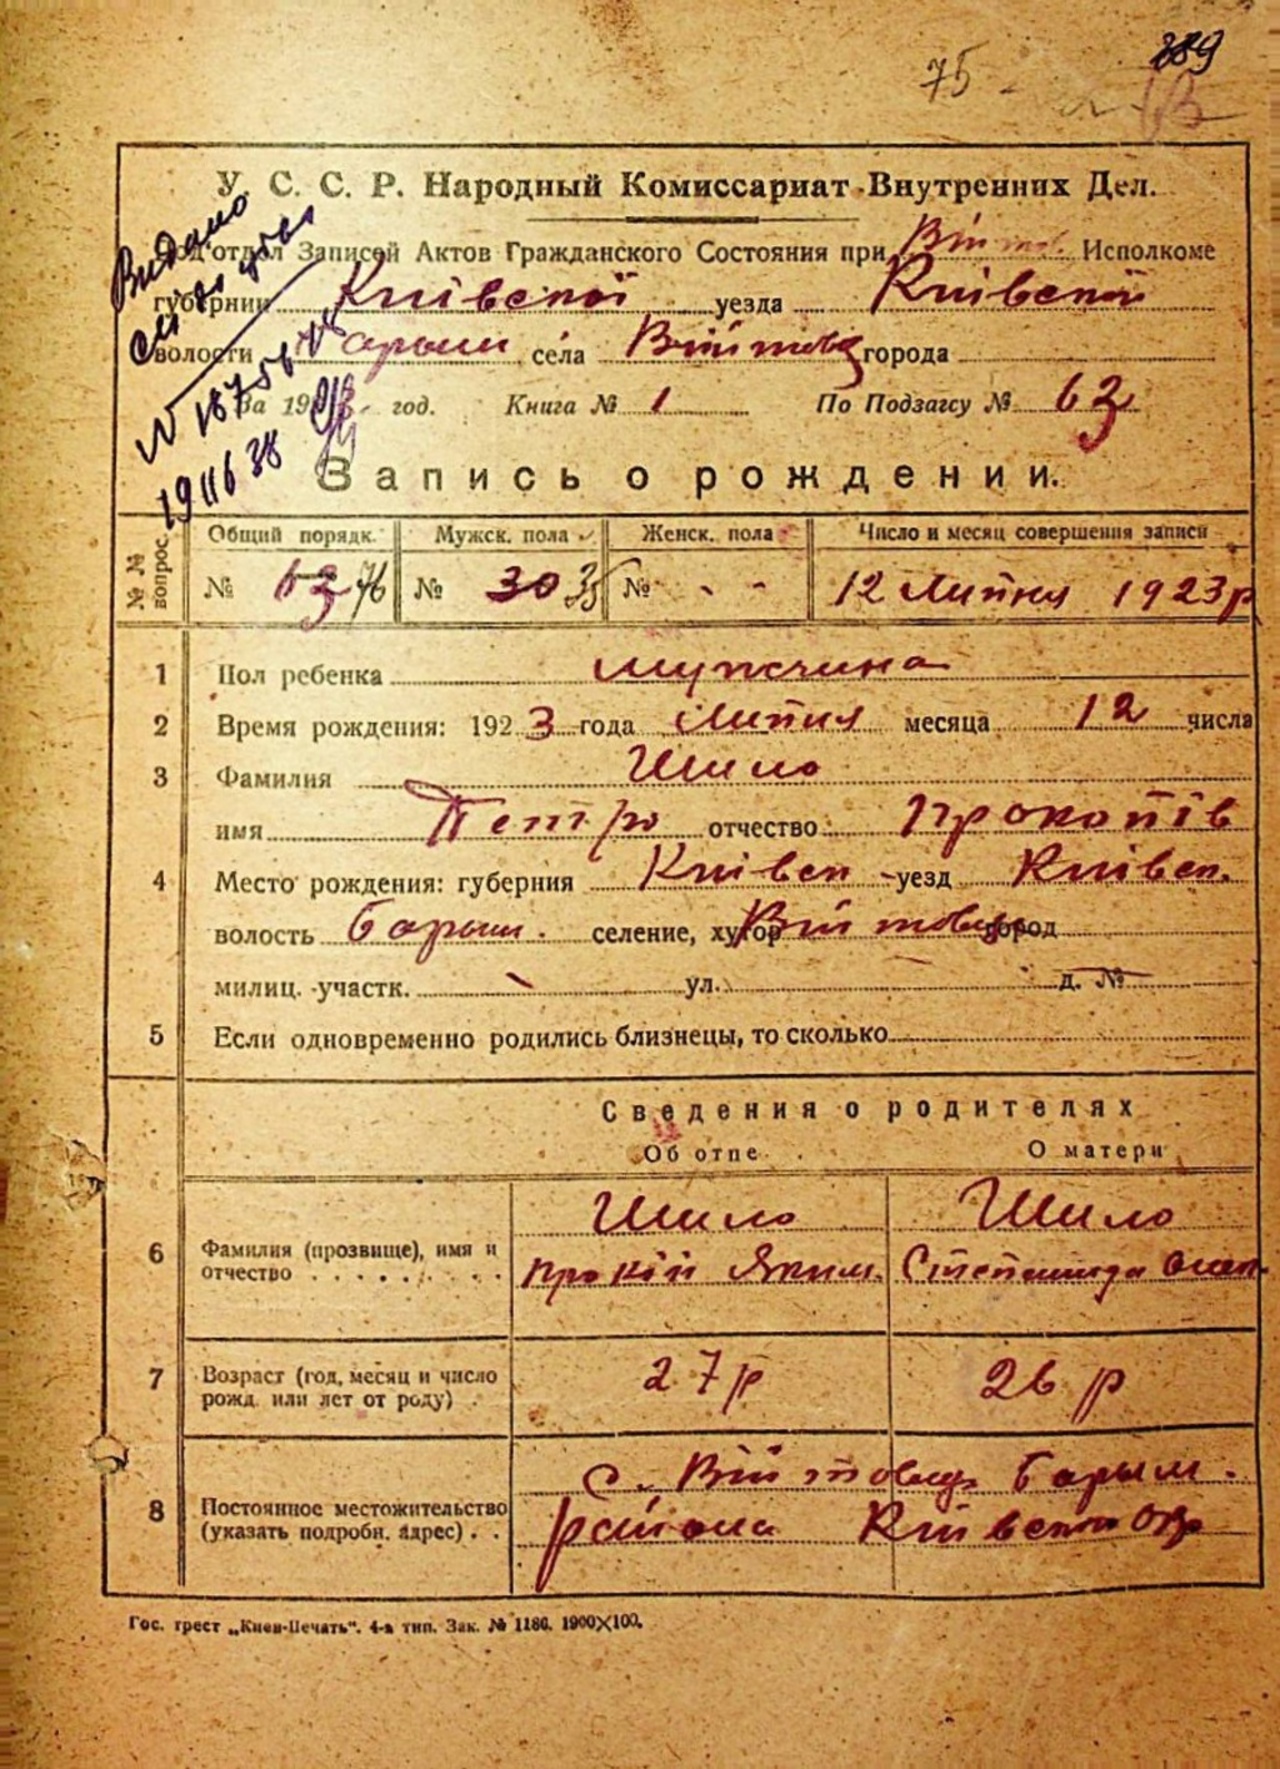 289
75
У. С. С. Р. Народный Комиссариат Внутренних Дел.
Видано
Под'отдел Записей Актов Гражданского Состояния при Війтов. Исполкоме
губернии Київської уезда Київської
волости Бариш села Війтовці города
За 1923 год. Книга № 1 По Подзагсу № 63
№ 187561
1911 6 38
Запись о рождении.
№ № вопрос. Общий порядк. Мужск. пола Женск. пола Число и месяц совершения записи
№ 63 76 № 30 35 № - - 12 Липня 1923 р
1 Пол ребенка мужчина
2 Время рождения: 1923 года Липня месяца 12 числа
3 Фамилия Шило
имя Петро отчество Прокопів
4 Место рождения: губерния Київск уезд Київск.
волость Бариш. селение, хутор Війтовці город
милиц. участк. ул. д. №
5 Если одновременно родились близнецы, то сколько
Сведения о родителях
Об отце О матери
Шило Шило
6 Фамилия (прозвище), имя и отчество Прокіп Яким. Степанида
7 Возраст (год, месяц и число рожд. или лет от роду) 27 р 26 р
с. Війтовці Бариш.
8 Постоянное местожительство (указать подробн. адрес) района Київської Окр
Гос. трест „Киев-Печать". 4-я тип. Зак. № 1186. 1900X100.